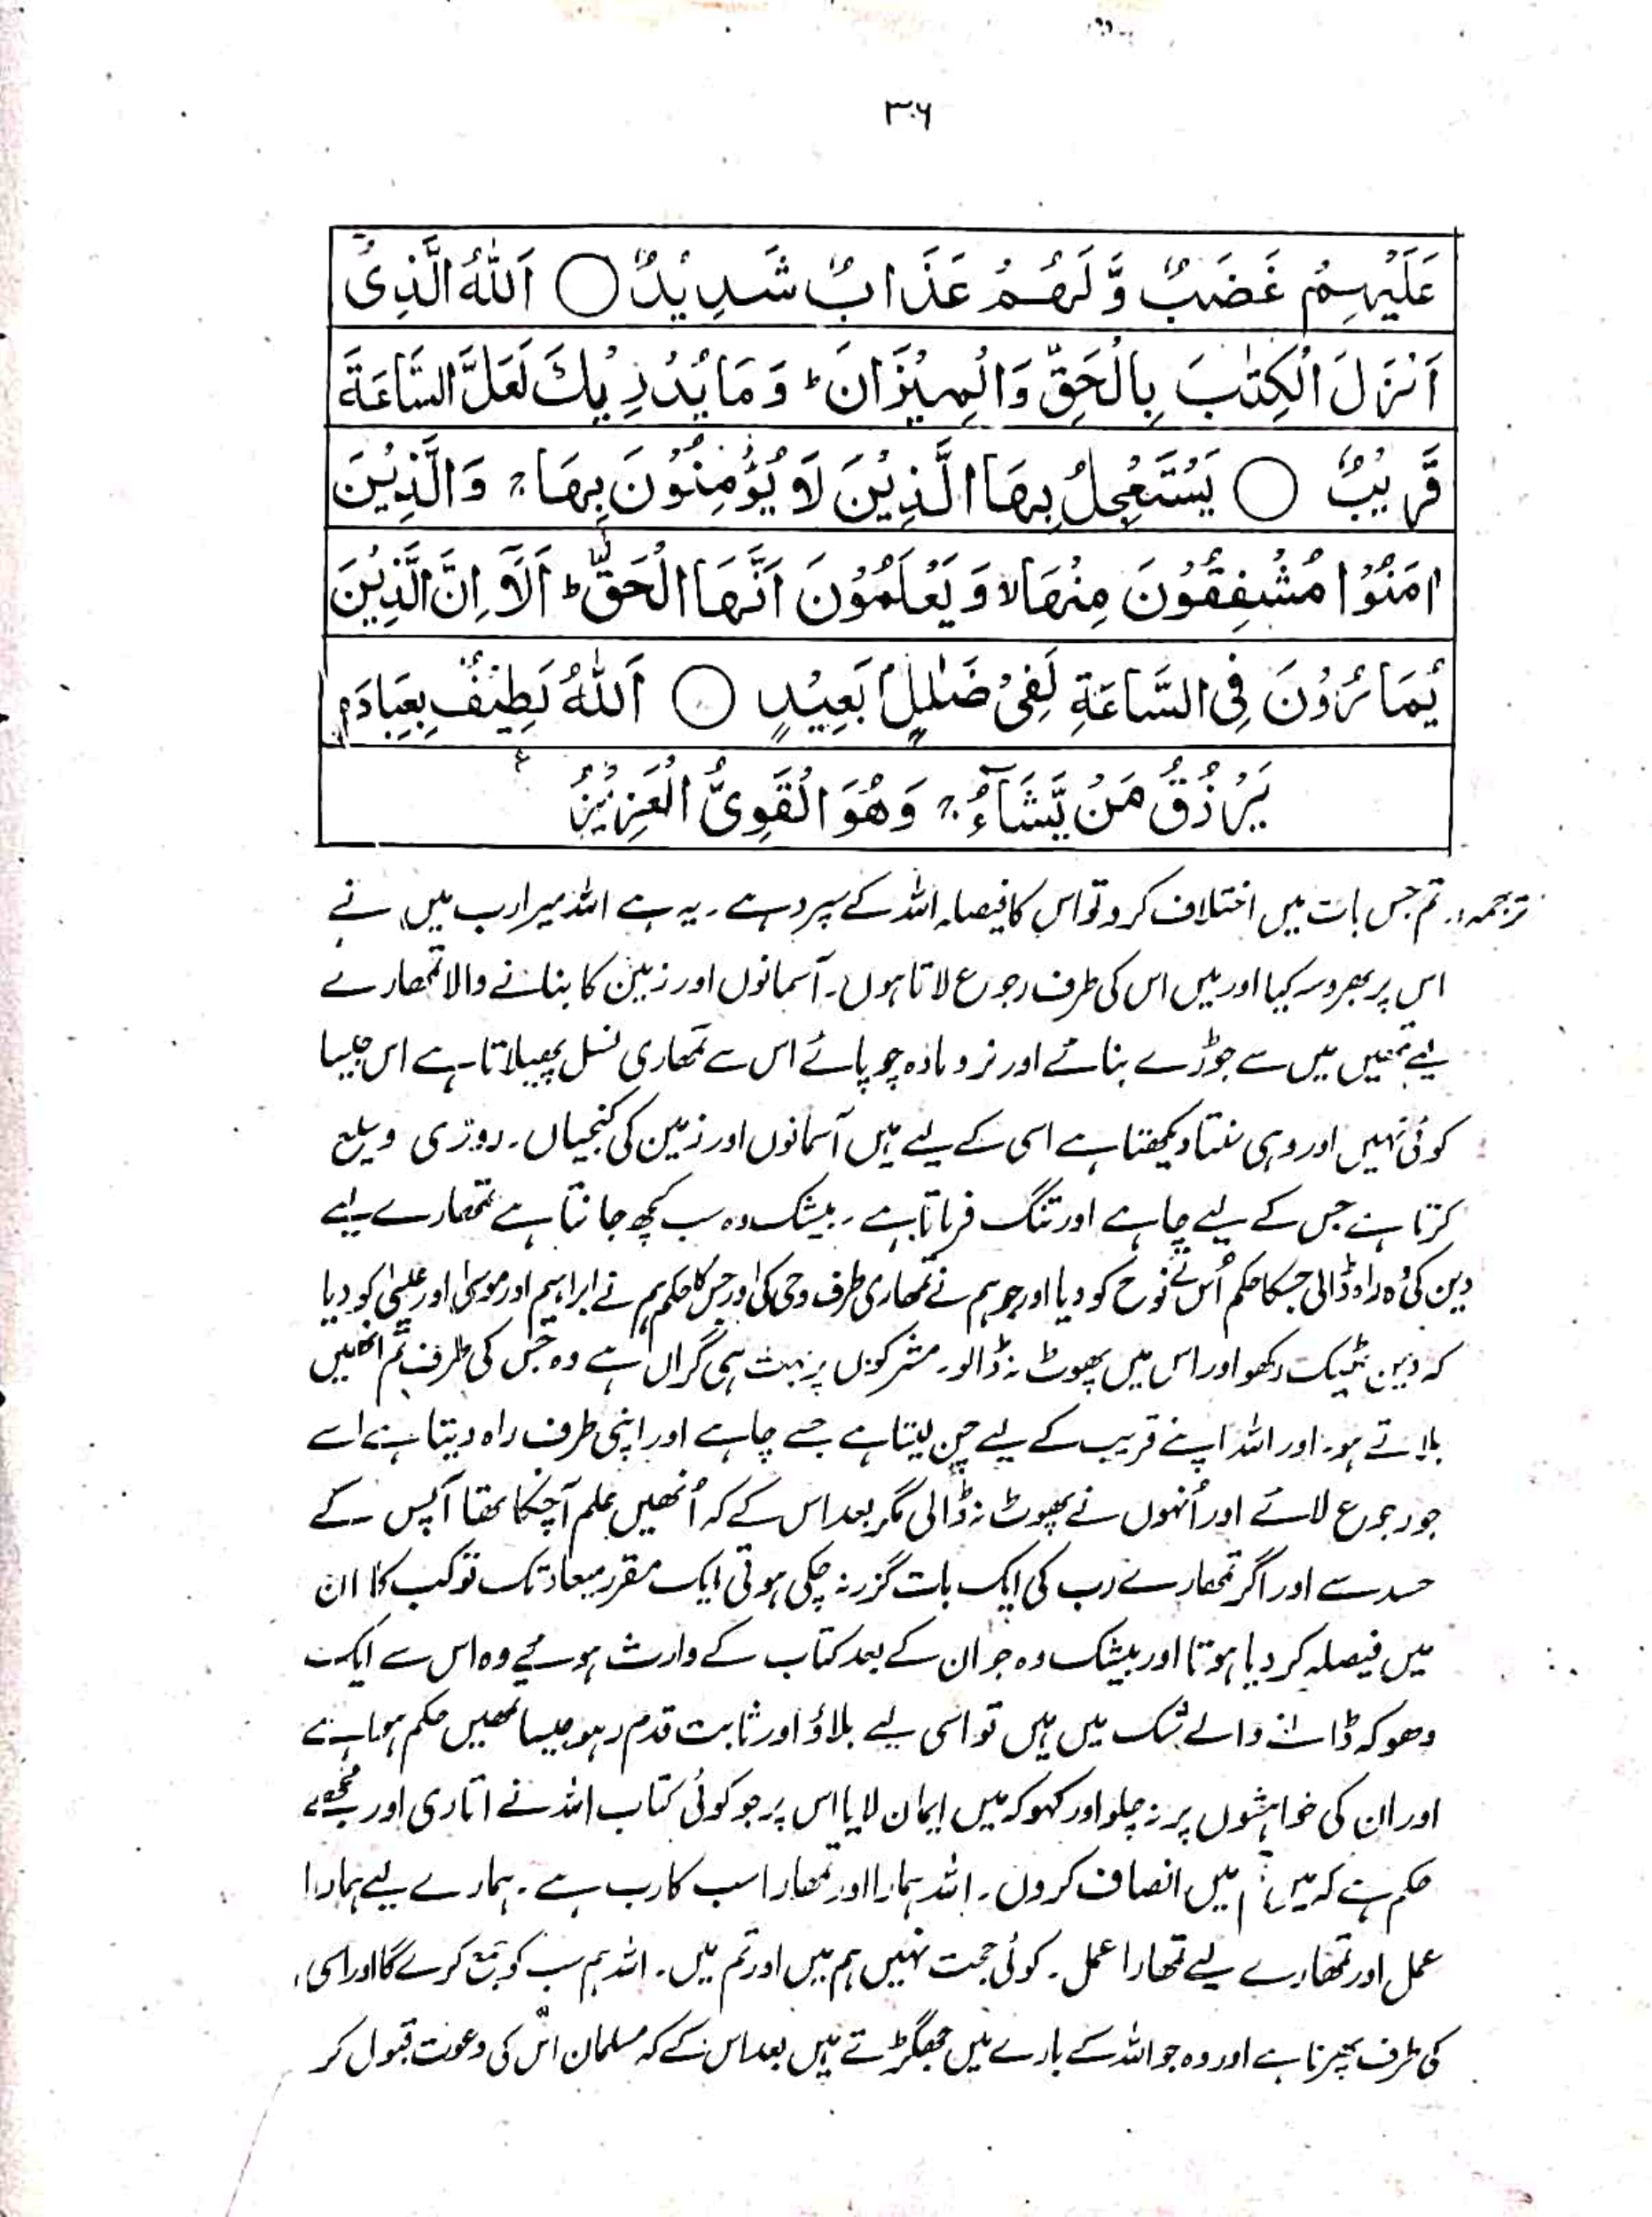 ۳۰۶
عَلَيْهِمْ غَضَبٌ وَّلَهُمْ عَذَابٌ شَدِيْدٌ ○ اَللّٰهُ الَّذِىْ
اَنْزَلَ الْكِتٰبَ بِالْحَقِّ وَالْمِيْزَانَ ؕ وَمَا يُدْرِيْكَ لَعَلَّ السَّاعَةَ
قَرِيْبٌ ○ يَسْتَعْجِلُ بِهَا الَّذِيْنَ لَا يُؤْمِنُوْنَ بِهَا ۚ وَالَّذِيْنَ
اٰمَنُوْا مُشْفِقُوْنَ مِنْهَا ۙ وَيَعْلَمُوْنَ اَنَّهَا الْحَقُّ ؕ اَلَاۤ اِنَّ الَّذِيْنَ
يُمَارُوْنَ فِى السَّاعَةِ لَفِىْ ضَلٰلٍۭ بَعِيْدٍ ○ اَللّٰهُ لَطِيْفٌۢ بِعِبَادِهٖ
يَرْزُقُ مَنْ يَّشَآءُ ۚ وَهُوَ الْقَوِىُّ الْعَزِيْزُ
ترجمہ :۔ تم جس بات میں اختلاف کرو تو اس کا فیصلہ اللہ کے سپرد ہے ۔ یہ ہے اللہ میرا رب میں نے
اس پر بھروسہ کیا اور میں اس کی طرف رجوع لاتا ہوں ۔ آسمانوں اور زمین کا بنانے والا تمھارے
لیے تمھیں میں سے جوڑے بنائے اور نر و مادہ چوپائے اس سے تمھاری نسل پھیلاتا ہے اس جیسا
کوئی نہیں اور وہی سنتا دیکھتا ہے اسی کے لیے ہیں آسمانوں اور زمین کی کنجیاں ۔ روزی وسیع
کرتا ہے جس کے لیے چاہے اور تنگ فرماتا ہے ۔ بیشک وہ سب کچھ جانتا ہے تمھارے لیے
دین کی وہ راہ ڈالی جسکا حکم اُس نے نوح کو دیا اور جو ہم نے تمھاری طرف وحی کی اور جس کا حکم ہم نے ابراہیم اور موسیٰ اور عیسیٰ کو دیا
کہ دین ٹھیک رکھو اور اس میں پھوٹ نہ ڈالو ۔ مشرکوں پر بہت ہی گراں ہے وہ جس کی طرف تم انھیں
بلاتے ہو ۔ اور اللہ اپنے قریب کے لیے چن لیتا ہے جسے چاہے اور اپنی طرف راہ دیتا ہے اسے
جو رجوع لائے اور اُنہوں نے پھوٹ نہ ڈالی مگر بعد اس کے کہ اُنھیں علم آچکا تھا آپس کے
حسد سے اور اگر تمھارے رب کی ایک بات گزر نہ چکی ہوتی ایک مقرر میعاد تک تو کب کا ان
میں فیصلہ کر دیا ہوتا اور بیشک وہ جو ان کے بعد کتاب کے وارث ہوئے وہ اس سے ایک
دھوکہ ڈالنے والے شک میں ہیں تو اسی لیے بلاؤ اور ثابت قدم رہو جیسا تمھیں حکم ہوا ہے
اور ان کی خواہشوں پر نہ چلو اور کہو کہ میں ایمان لایا اس پر جو کوئی کتاب اللہ نے اتاری اور مجھے
حکم ہے کہ میں تم میں انصاف کروں ۔ اللہ ہمارا اور تمھارا سب کا رب ہے ۔ ہمارے لیے ہمارا
عمل اور تمھارے لیے تمھارا عمل ۔ کوئی حجت نہیں ہم میں اور تم میں ۔ اللہ ہم سب کو جمع کرے گا اور اسی
کی طرف پھرنا ہے اور وہ جو اللہ کے بارے میں جھگڑتے ہیں بعد اس کے کہ مسلمان اس کی دعوت قبول کر